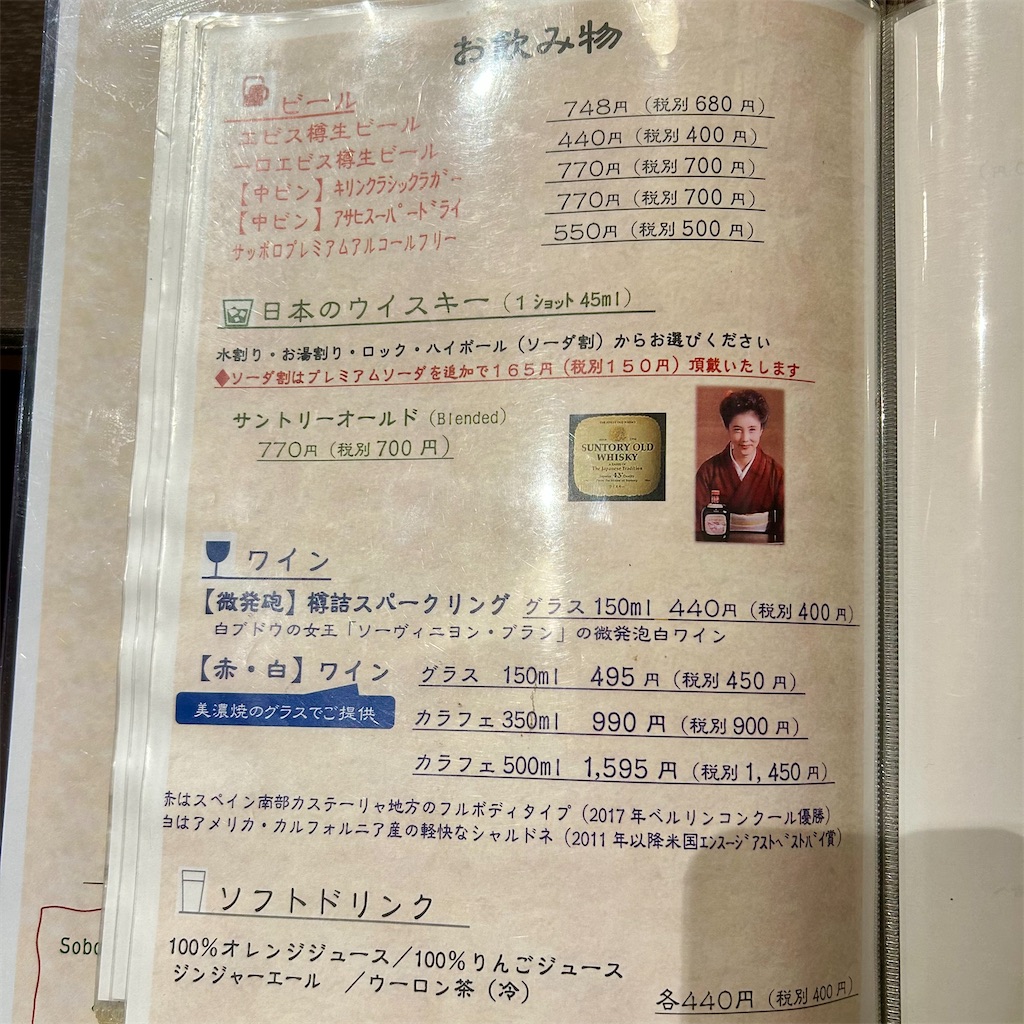 お飲み物
ビール
エビス樽生ビール 748円（税別 680 円）
一口エビス樽生ビール 440円（税別 400 円）
【中ビン】キリンクラシックラガー 770円（税別 700 円）
【中ビン】アサヒスーパードライ 770円（税別 700 円）
サッポロプレミアムアルコールフリー 550円（税別 500 円）
日本のウイスキー（1 ショット 45ml）
水割り・お湯割り・ロック・ハイボール（ソーダ割）からお選びください
◆ソーダ割はプレミアムソーダを追加で165円（税別150円）頂戴いたします
サントリーオールド（Blended）
770円（税別 700 円）
SUNTORY OLD
WHISKY
ワイン
【微発砲】樽詰スパークリング グラス 150ml 440円（税別 400 円）
白ブドウの女王「ソーヴィニヨン・ブラン」の微発泡白ワイン
【赤・白】ワイン グラス 150ml 495 円（税別 450 円）
美濃焼のグラスでご提供
カラフェ 350ml 990 円（税別 900 円）
カラフェ 500ml 1,595 円（税別 1,450 円）
赤はスペイン南部カステーリャ地方のフルボディタイプ（2017 年ベルリンコンクール優勝）
白はアメリカ・カルフォルニア産の軽快なシャルドネ（2011 年以降米国エンスージアストベストバイ賞）
ソフトドリンク
100％オレンジジュース／100％りんごジュース
ジンジャーエール ／ウーロン茶（冷）
各440円（税別 400 円）